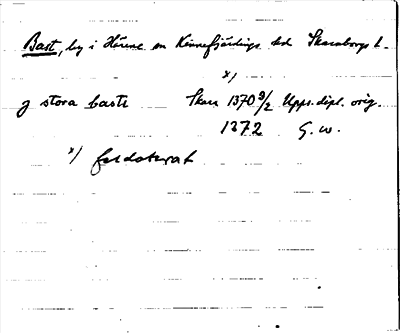 Bast, by i Härene sn Kinnefjärdings hd Skaraborgs l.
x)
j stora baste Skara 1370 9/2 Upps. dipl. orig.
1372 G. W.
x) feldaterat